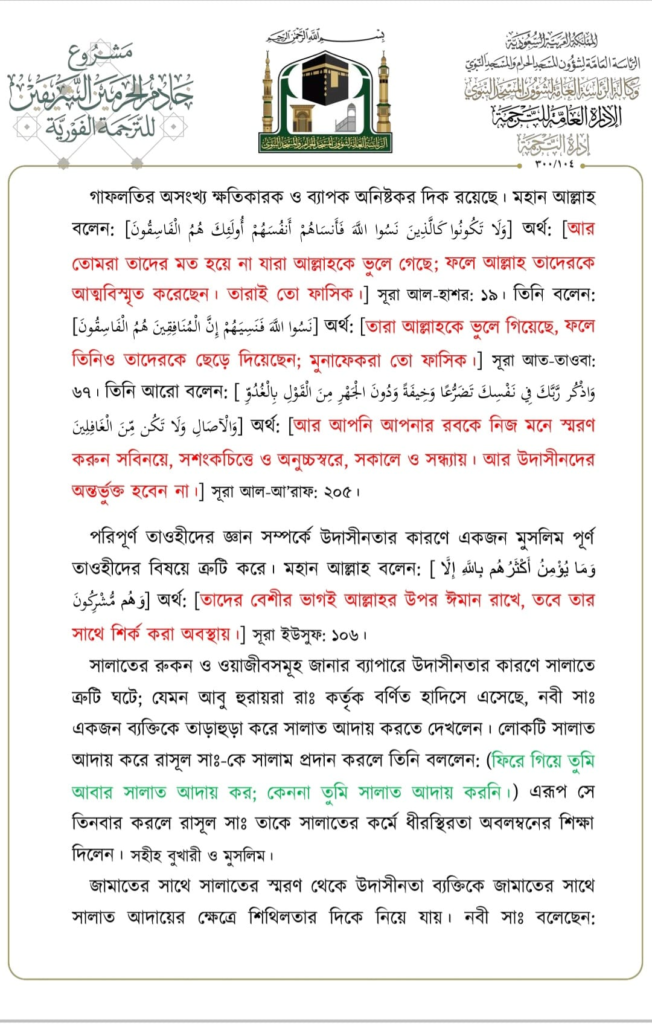 مشروع
خادم الحرمين الشريفين
للترجمة الفورية
بسم الله الرحمن الرحيم
الرئاسة العامة لشؤون المسجد الحرام والمسجد النبوي
المملكة العربية السعودية
الرئاسة العامة لشؤون المسجد الحرام والمسجد النبوي
وكالة الرئاسة العامة لشؤون المسجد النبوي
الإدارة العامة للترجمة
إدارة الترجمة
٣٠٠/١٠٤
গাফলতির অসংখ্য ক্ষতিকারক ও ব্যাপক অনিষ্টকর দিক রয়েছে। মহান আল্লাহ
বলেন: [وَلَا تَكُونُوا كَالَّذِينَ نَسُوا اللَّهَ فَأَنسَاهُمْ أَنفُسَهُمْ أُولَئِكَ هُمُ الْفَاسِقُونَ] অর্থ: [আর
তোমরা তাদের মত হয়ে না যারা আল্লাহকে ভুলে গেছে; ফলে আল্লাহ তাদেরকে
আত্মবিস্মৃত করেছেন। তারাই তো ফাসিক।] সূরা আল-হাশর: ১৯। তিনি বলেন:
[نَسُوا اللَّهَ فَنَسِيَهُمْ إِنَّ الْمُنَافِقِينَ هُمُ الْفَاسِقُونَ] অর্থ: [তারা আল্লাহকে ভুলে গিয়েছে, ফলে
তিনিও তাদেরকে ছেড়ে দিয়েছেন; মুনাফেকরা তো ফাসিক।] সূরা আত-তাওবা:
৬৭। তিনি আরো বলেন: [ وَاذْكُر رَّبَّكَ فِي نَفْسِكَ تَضَرُّعًا وَخِيفَةً وَدُونَ الْجَهْرِ مِنَ الْقَوْلِ بِالْغُدُوِّ
وَالْآصَالِ وَلَا تَكُن مِّنَ الْغَافِلِينَ] অর্থ: [আর আপনি আপনার রবকে নিজ মনে স্মরণ
করুন সবিনয়ে, সশংকচিত্তে ও অনুচ্চস্বরে, সকালে ও সন্ধ্যায়। আর উদাসীনদের
অন্তর্ভুক্ত হবেন না।] সূরা আল-আ'রাফ: ২০৫।
পরিপূর্ণ তাওহীদের জ্ঞান সম্পর্কে উদাসীনতার কারণে একজন মুসলিম পূর্ণ
তাওহীদের বিষয়ে ত্রুটি করে। মহান আল্লাহ বলেন: [ وَمَا يُؤْمِنُ أَكْثَرُهُم بِاللَّهِ إِلَّا
وَهُم مُّشْرِكُونَ] অর্থ: [তাদের বেশীর ভাগই আল্লাহর উপর ঈমান রাখে, তবে তার
সাথে শির্ক করা অবস্থায়।] সূরা ইউসুফ: ১০৬।
সালাতের রুকন ও ওয়াজীবসমূহ জানার ব্যাপারে উদাসীনতার কারণে সালাতে
ত্রুটি ঘটে; যেমন আবু হুরায়রা রাঃ কর্তৃক বর্ণিত হাদিসে এসেছে, নবী সাঃ
একজন ব্যক্তিকে তাড়াহুড়া করে সালাত আদায় করতে দেখলেন। লোকটি সালাত
আদায় করে রাসূল সাঃ-কে সালাম প্রদান করলে তিনি বললেন: (ফিরে গিয়ে তুমি
আবার সালাত আদায় কর; কেননা তুমি সালাত আদায় করনি।) এরূপ সে
তিনবার করলে রাসূল সাঃ তাকে সালাতের কর্মে ধীরস্থিরতা অবলম্বনের শিক্ষা
দিলেন। সহীহ বুখারী ও মুসলিম।
জামাতের সাথে সালাতের স্মরণ থেকে উদাসীনতা ব্যক্তিকে জামাতের সাথে
সালাত আদায়ের ক্ষেত্রে শিথিলতার দিকে নিয়ে যায়। নবী সাঃ বলেছেন: